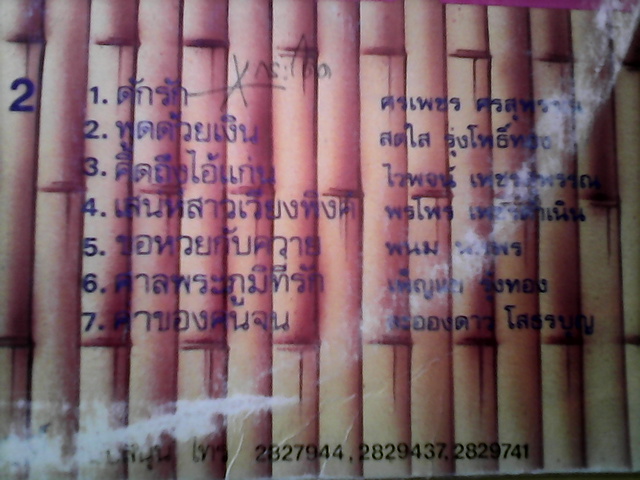 2
1. ดักรัก ศรเพชร ศรสุพรรณ
2. พูดด้วยเงิน สดใส รุ่งโพธิ์ทอง
3. คิดถึงไอ้แก่น ไวพจน์ เพชรสุพรรณ
4. เสน่ห์สาวเวียงพิงค์ พรไพร เพชรดำเนิน
5. ขอหวยกับควาย พนม นพพร
6. ศาลพระภูมิที่รัก เพ็ญแข รุ่งทอง
7. ค่าของคนจน ละอองดาว โสธรบุญ
โทร 2827944, 2829437, 2829741